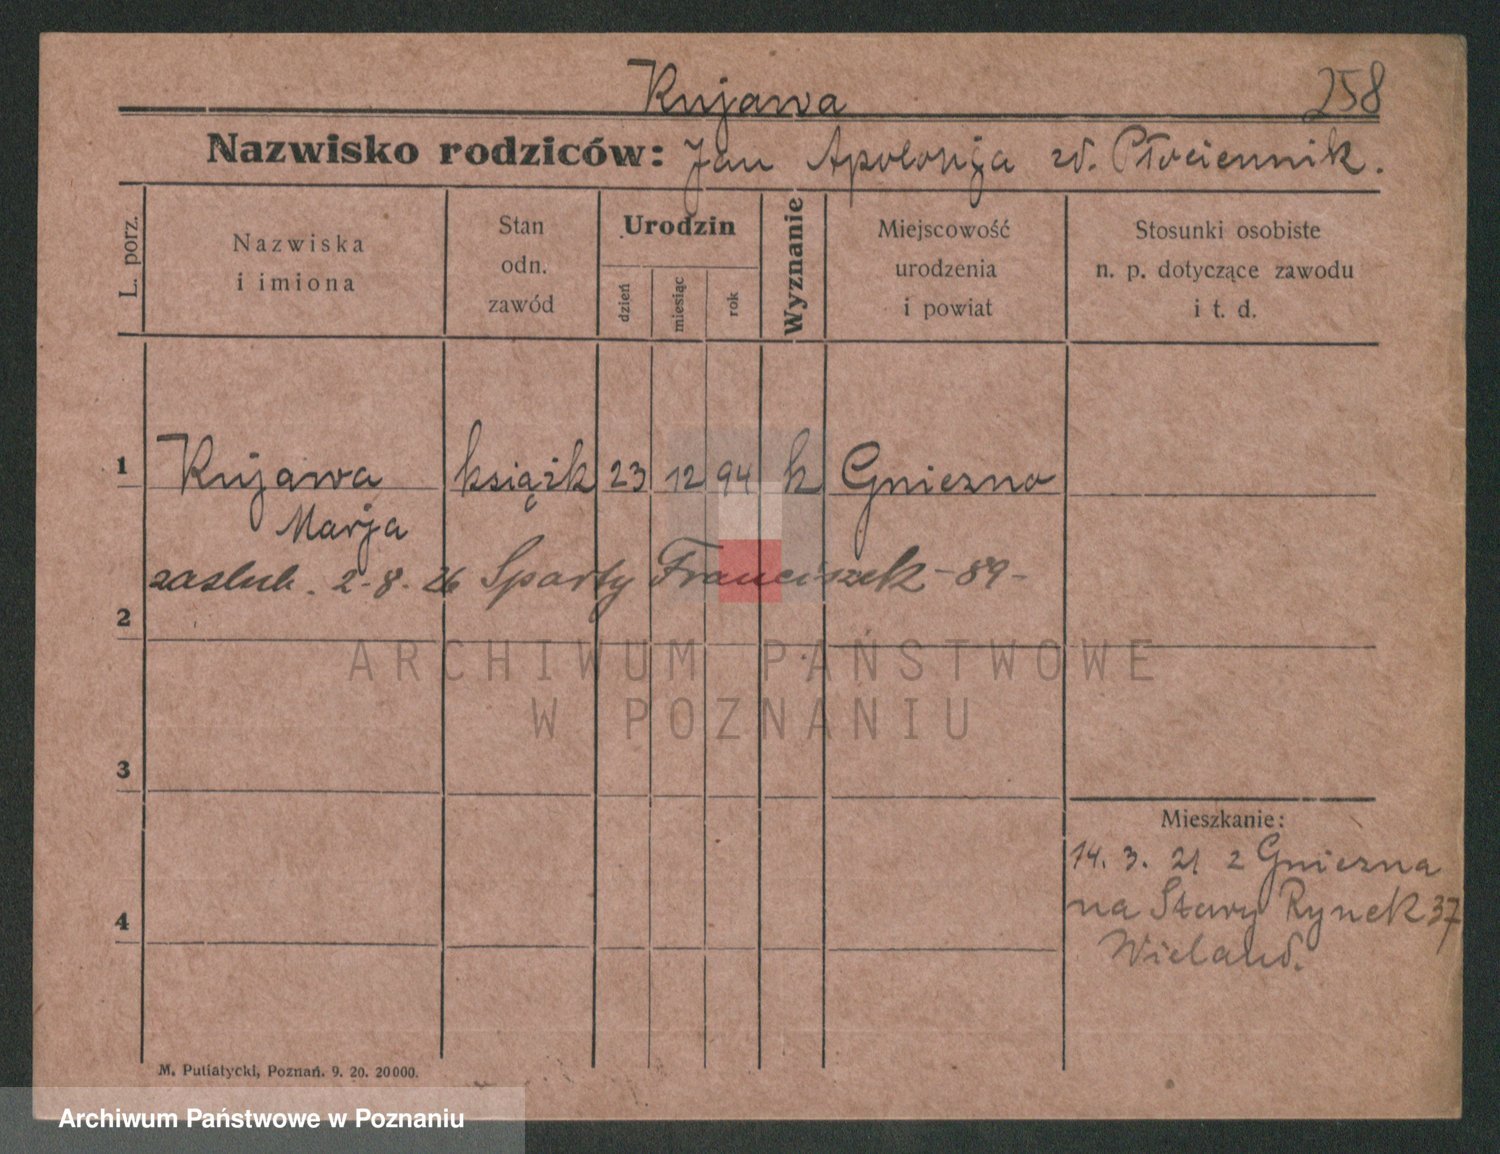 Kujawa 258
Nazwisko rodziców: Jan Apolonja zd. Płóciennik.
L. porz.
Nazwiska
i imiona
Stan
odn.
zawód
Urodzin
dzień
miesiąc
rok
Wyznanie
Miejscowość
urodzenia
i powiat
Stosunki osobiste
n. p. dotyczące zawodu
i t. d.
1 Kujawa książk 23 12 94 k Gniezno
Marja
zaslub. 2-8. 26 Sparty Franciszek -89-
2
ARCHIWUM PAŃSTWOWE
W POZNANIU
3
Mieszkanie:
14. 3. 21 z Gniezna
na Stary Rynek 37
4
Wieland.
M. Putiatycki, Poznań. 9. 20. 20000.
Archiwum Państwowe w Poznaniu